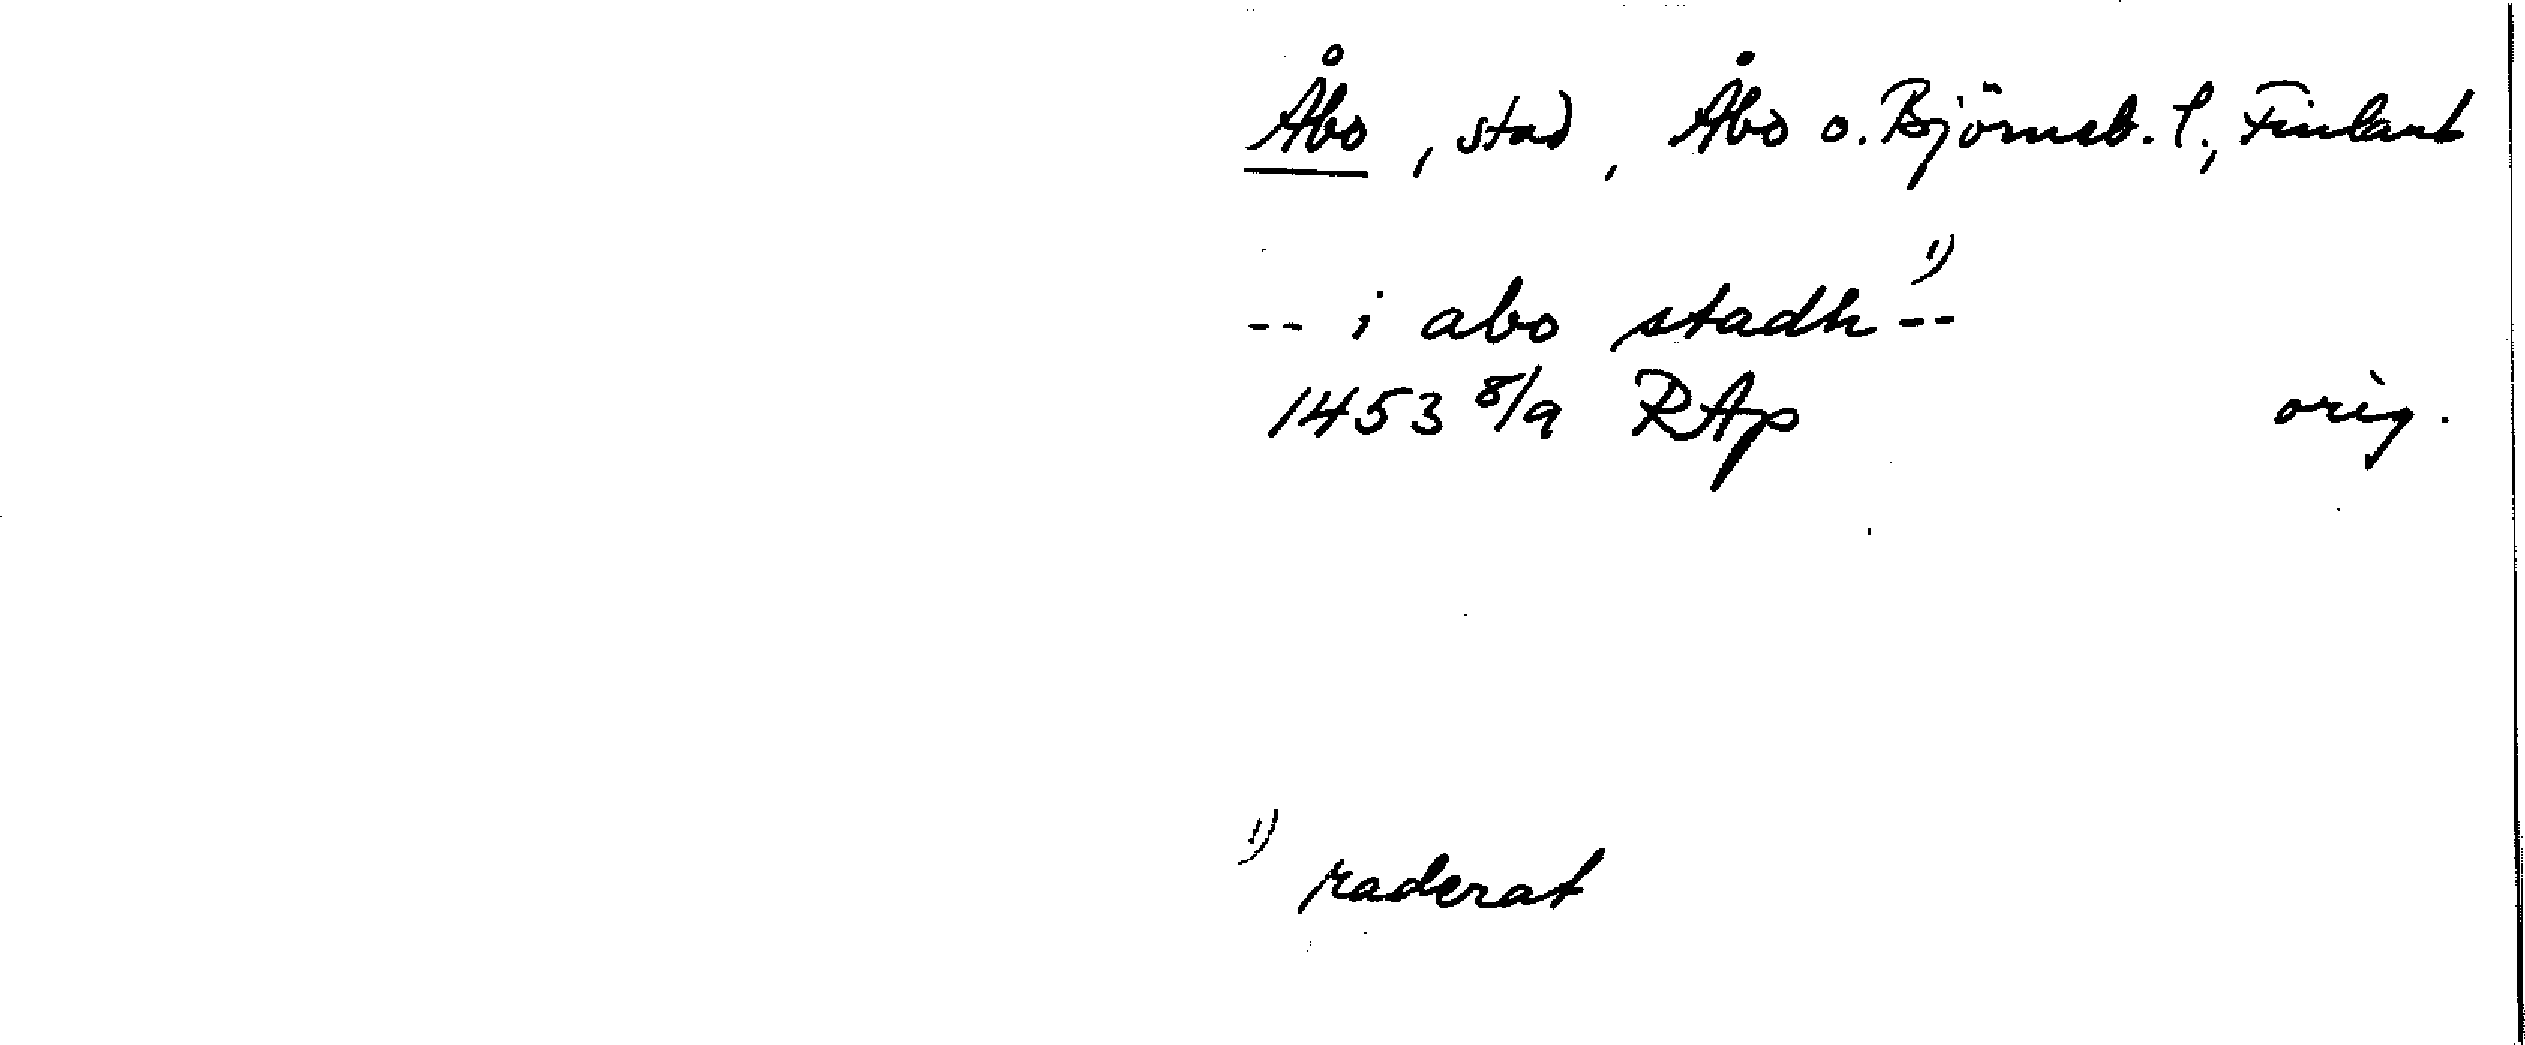 Åbo, stad, Åbo o. Björneb. l., Finland
-- i abo stadh 1) --
1453 8/9 RAp orig.
1) raderat